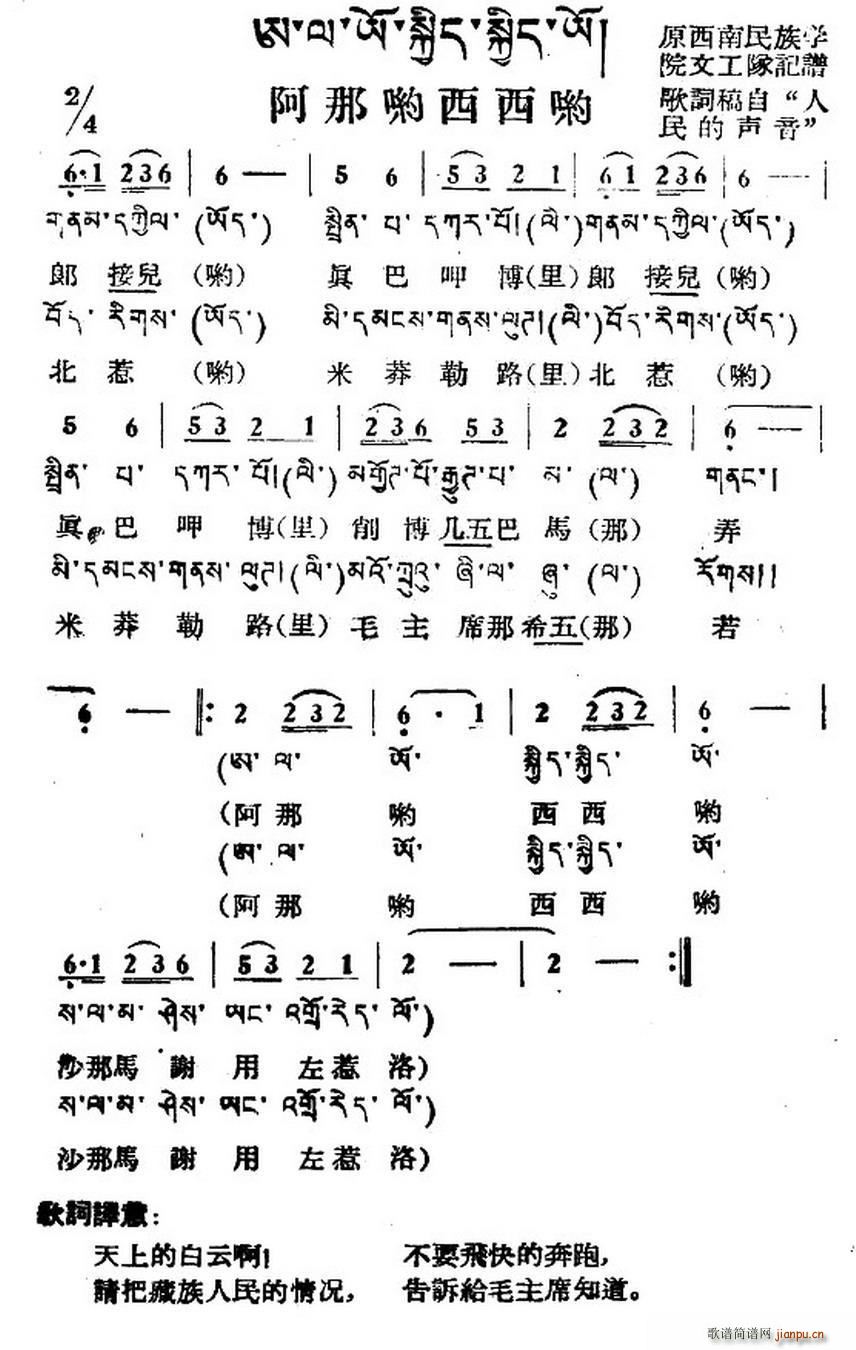 ཨ་ལ་ཡོ་སྐྱིད་སྐྱིད་ཡོ།
阿那喲西西喲
原西南民族学
院文工隊記譜
歌詞稿自“人
民的声音”
2/4
6·1 236 | 6 — | 5 6 | 53 2 1 | 61 236 | 6 — |
གནམ་དཀྱིལ་(ཡོད་) སྤྲིན་པ་དཀར་པོ།(ལི་)གནམ་དཀྱིལ་(ཡོད་)
郞接兒(喲) 眞巴呷博(里)郞接兒(喲)
བོད་རིགས་(ཡོད་) མི་དམངས་གནས་ལུད།(ལི་)བོད་རིགས་(ཡོད་)
北惹(喲) 米莽勒路(里)北惹(喲)
5 6 | 53 2 1 | 236 53 | 2 232 | 6 — |
སྤྲིན་པ་དཀར་པོ།(ལི་)མགྱོཊ་པོ་རྒྱུཊ་པ་མ་(ལ་)གནང་།
眞巴呷博(里)削博几五巴馬(那)弄
མི་དམངས་གནས་ལུད།(ལི་)མའོ་ཀྲུའུ་ཞི་ལ་ཞུ་(ལ་)རོགས།།
米莽勒路(里)毛主席那希五(那)若
6 — |: 2 232 | 6 · 1 | 2 232 | 6 — |
(ཨ་ལ་ཡོ་སྐྱིད་སྐྱིད་ཡོ་
(阿那喲西西喲
(ཨ་ལ་ཡོ་སྐྱིད་སྐྱིད་ཡོ་
(阿那喲西西喲
6·1 236 | 53 2 1 | 2 — | 2 — :|
ས་ལ་མ་ཤེས་ཡང་འགྲོ་རེད་ལོ་)
沙那馬謝用左惹洛)
ས་ལ་མ་ཤེས་ཡང་འགྲོ་རེད་ལོ་)
沙那馬謝用左惹洛)
歌詞譯意：
天上的白云啊! 不要飛快的奔跑，
請把藏族人民的情况， 告訴給毛主席知道。
歌谱简谱网 jianpu.cn